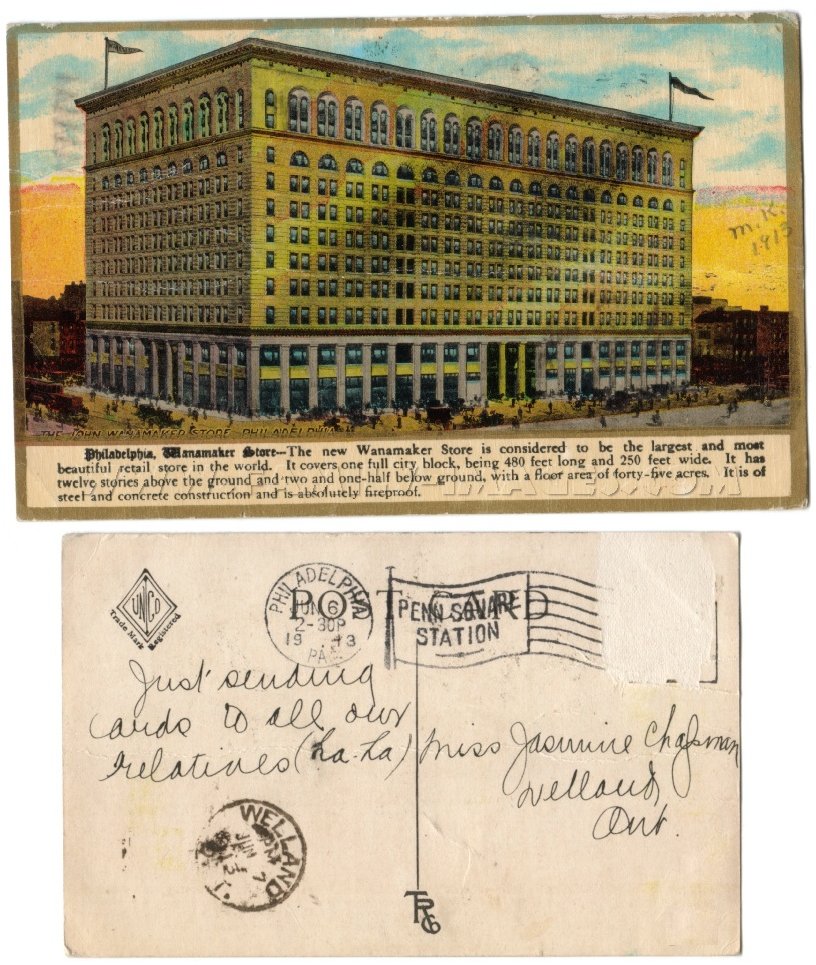 M.K.
1913
THE JOHN WANAMAKER STORE, PHILADELPHIA
Philadelphia, Wanamaker Store—The new Wanamaker Store is considered to be the largest and most
beautiful retail store in the world. It covers one full city block, being 480 feet long and 250 feet wide. It has
twelve stories above the ground and two and one-half below ground, with a floor area of forty-five acres. It is of
steel and concrete construction and is absolutely fireproof.
UNCO
Trade Mark Registered
POST CARD
PHILADELPHIA
JUN 6
2-30P
1913
PA.
PENN SQUARE
STATION
Just sending
cards to all our
relatives (ha-ha)
Miss Jasmine Chapman
Welland,
Ont.
WELLAND
PM
JUN 7
TRCo